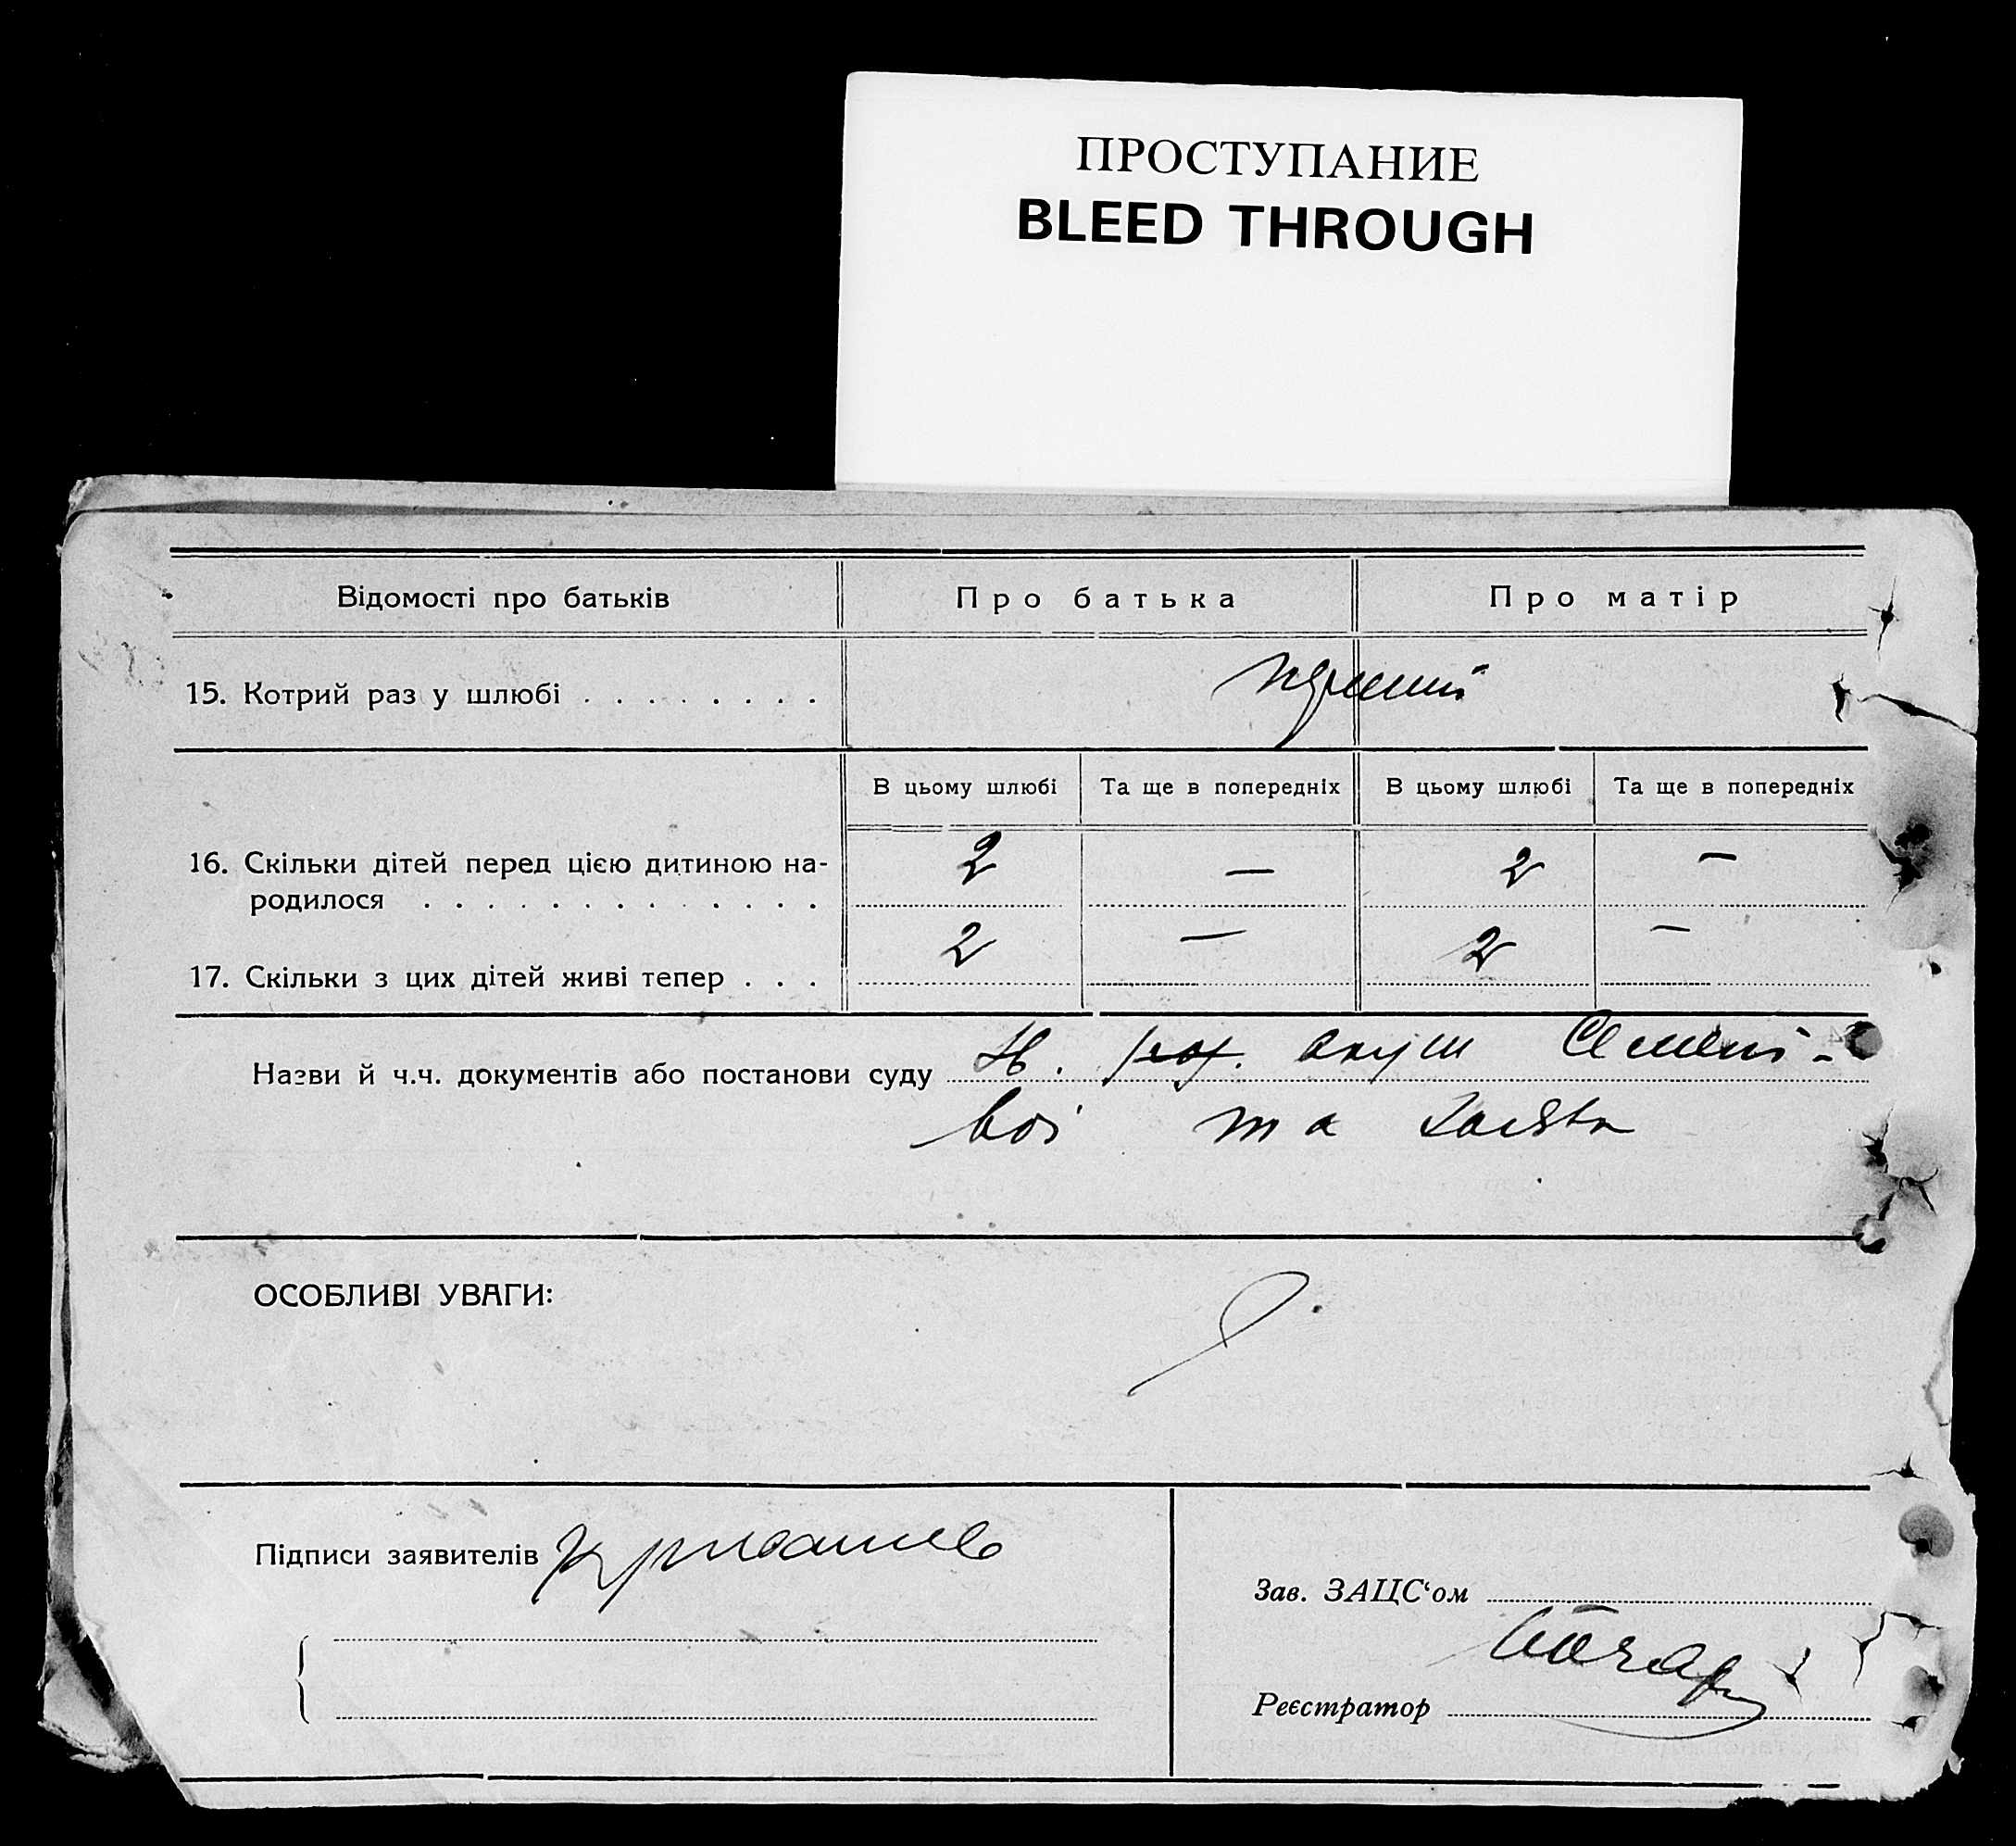 ПРОСТУПАНИЕ
BLEED THROUGH
Відомості про батьків
Про батька
Про матір
15. Котрий раз у шлюбі . . . . . . . .
В цьому шлюбі
Та ще в попередніх
В цьому шлюбі
Та ще в попередніх
16. Скільки дітей перед цією дитиною на-
родилося . . . . . . . . . . . . .
2 — 2 —
17. Скільки з цих дітей живі тепер . . .
2 — 2 —
Назви й ч.ч. документів або постанови суду
вої та
ОСОБЛИВІ УВАГИ:
Підписи заявителів
Зав. ЗАЦС‘ом
Реєстратор